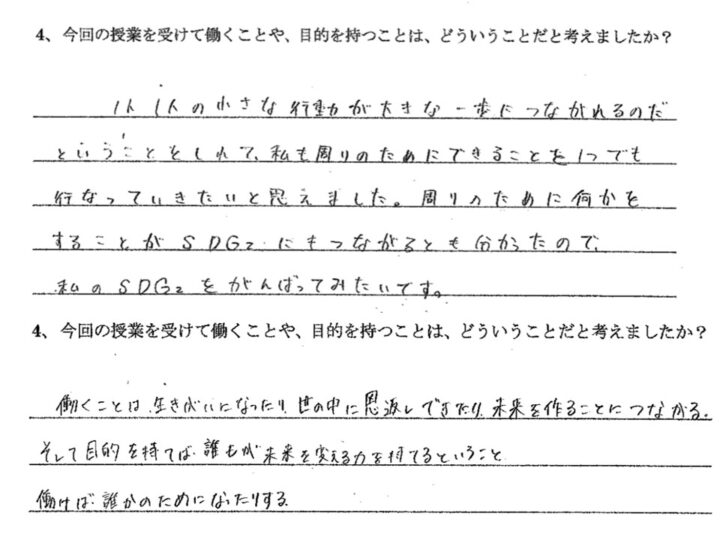 4、今回の授業を受けて働くことや、目的を持つことは、どういうことだと考えましたか？
1人1人の小さな行動が大きな一歩につながれるのだ
ということをしれて、私も周りのためにできることを1つでも
行なっていきたいと思えました。周りのために何かを
することがSDGsにもつながるとも分かったので、
私のSDGsをがんばってみたいです。
4、今回の授業を受けて働くことや、目的を持つことは、どういうことだと考えましたか？
働くことは、生きがいになったり、世の中に恩返しできたり、未来を作ることにつながる。
そして目的を持てば、誰もが未来を変える力を持てるということ
働けば、誰かのためになったりする。